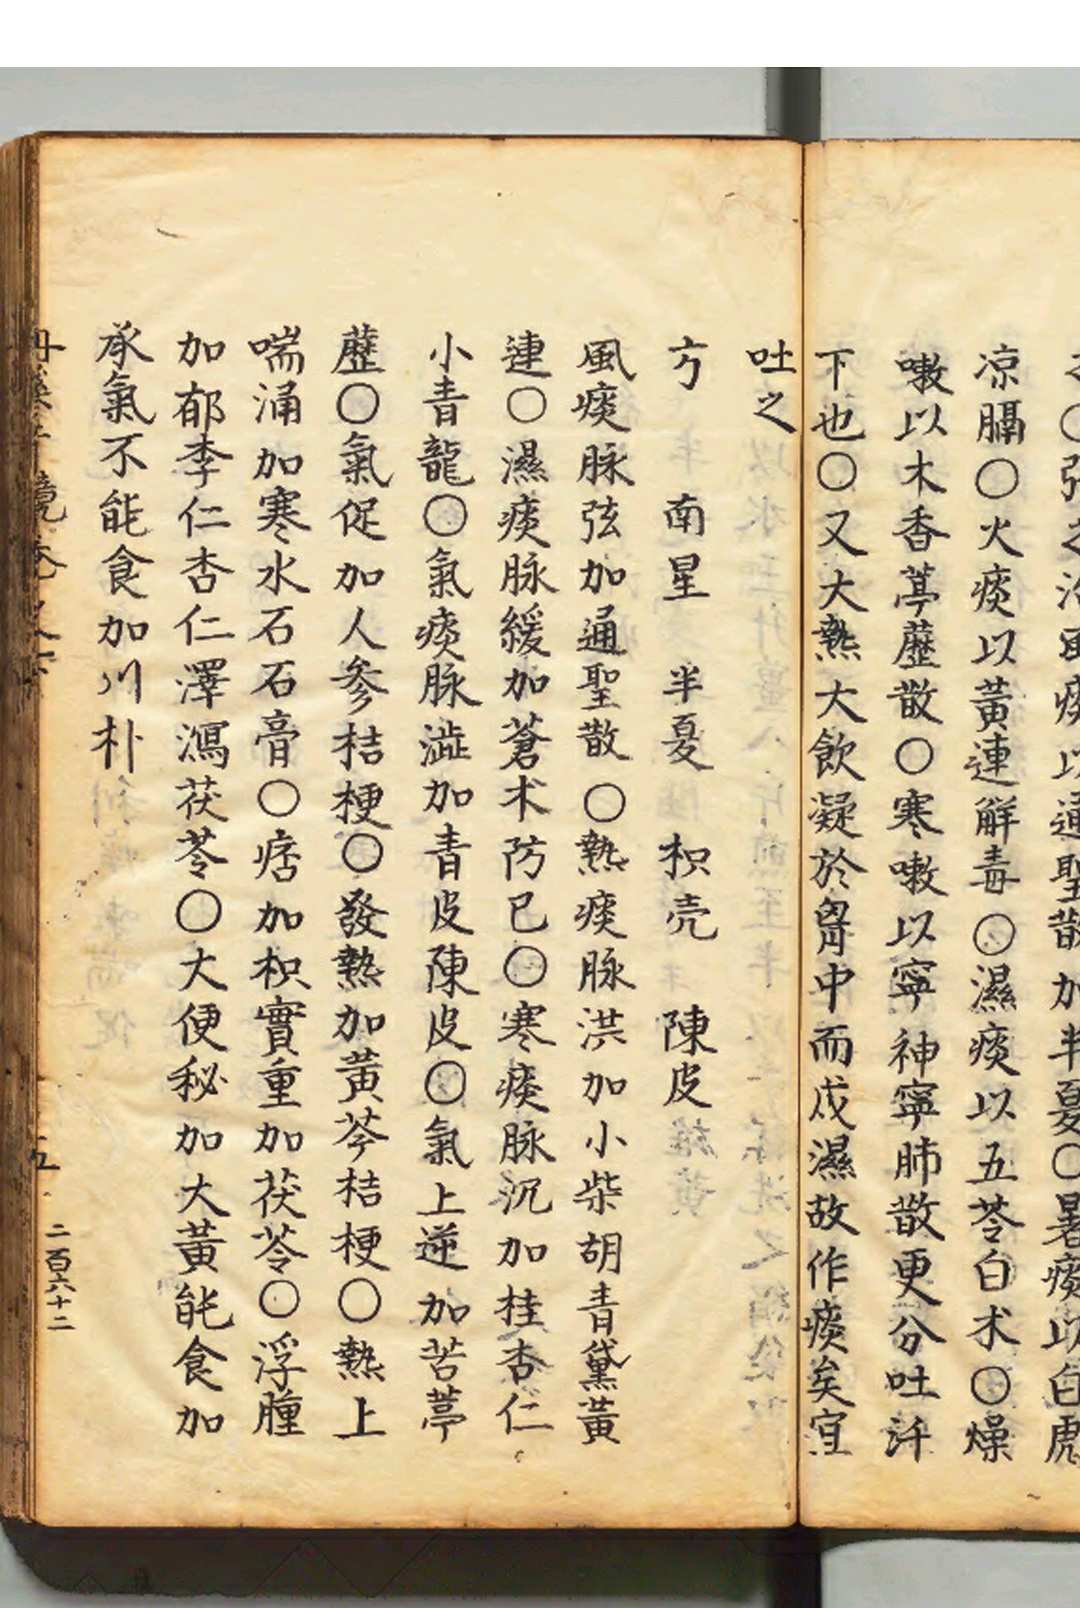 之○弦之治面痰以通聖散加半夏○暑痰以白虎
涼膈○火痰以黃連解毒○濕痰以五苓白朮○燥
嗽以木香葶藶散○寒嗽以寧神寧肺散更分吐汗
下也○又大熱大飲凝於胷中而成濕故作痰矣宜
吐之
方　南星　半夏　枳壳　陳皮
風痰脉弦加通聖散○熱痰脉洪加小柴胡青黛黃
連○濕痰脉緩加蒼术防已○寒痰脉沉加桂杏仁
小青龍○氣痰脉澁加青皮陳皮○氣上逆加苦葶
藶○氣促加人參桔梗○發熱加黃芩桔梗○熱上
喘涌加寒水石石膏○痞加枳實重加茯苓○浮腫
加郁李仁杏仁澤瀉茯苓○大便秘加大黃能食加
承氣不能食加川朴
二百六十二